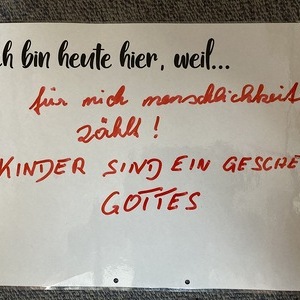 ch bin heute hier, weil...
für mich menschlichkeit
zählt!
KINDER SIND EIN GESCHE
GOTTES